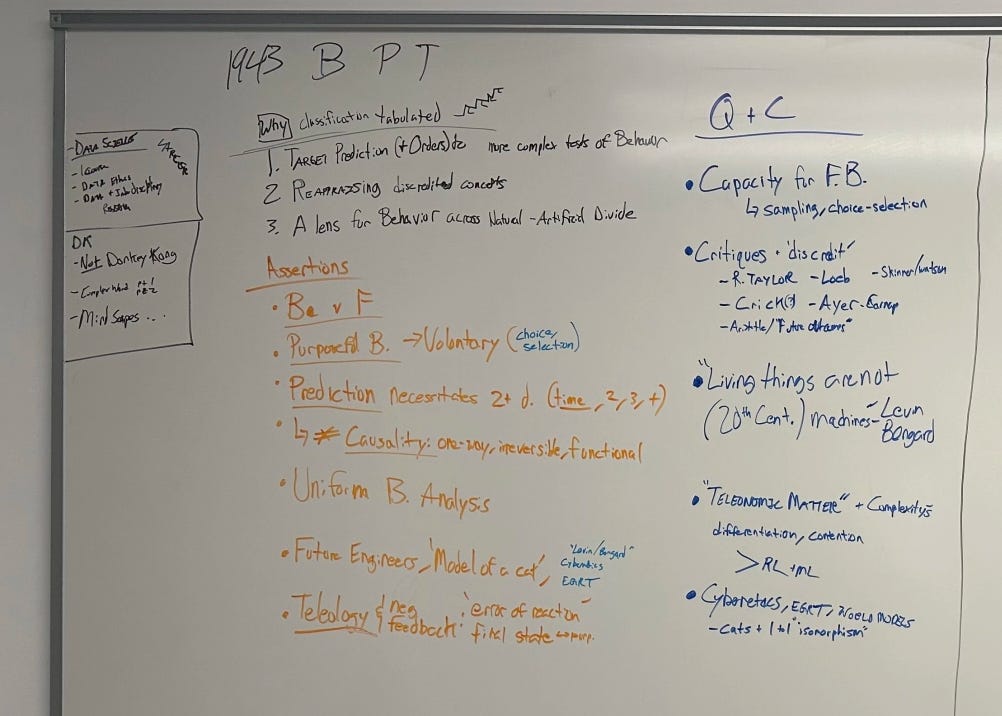 1943 B P T
Why classification tabulated
1. TARGET Prediction (+ Orders) to more complex tests of Behavior
2 REAPPRAISING discredited concepts
3. A lens for Behavior across Natural - Artificial Divide
Assertions
• Be v F
• Purposeful B. → Voluntary (choice, selection)
• Prediction necessitates 2+ d. (time, 2, 3, +)
• ↳ ≠ Causality: one-way, irreversible, functional
• Uniform B. Analysis
• Future Engineers, 'Model of a cat',
"Levin/Bongard"
Cybernetics
EGRT
• Teleology & neg feedback: 'error of reaction'
final state ↔ purp.
- DATA SCIENCE
- DATA Ethics
DK
- Not Donkey Kong
- Mind Scapes...
Q + C
• Capacity for F.B.
↳ sampling, choice-selection
• Critiques + 'discredit'
- R. TAYLOR - Loeb - Skinner/Watson
- Crick(?) - Ayer - Carnap
- Aristotle/"Future
• "Living things are not
(20th Cent.) machines" - Levin
Bongard
• "TELEONOMIC MATTER" + Complexity's
differentiation, contention
> RL + ML
• Cybernetics, EGRT, WORLD MODELS
- cats + 1 to 1 "isomorphism"